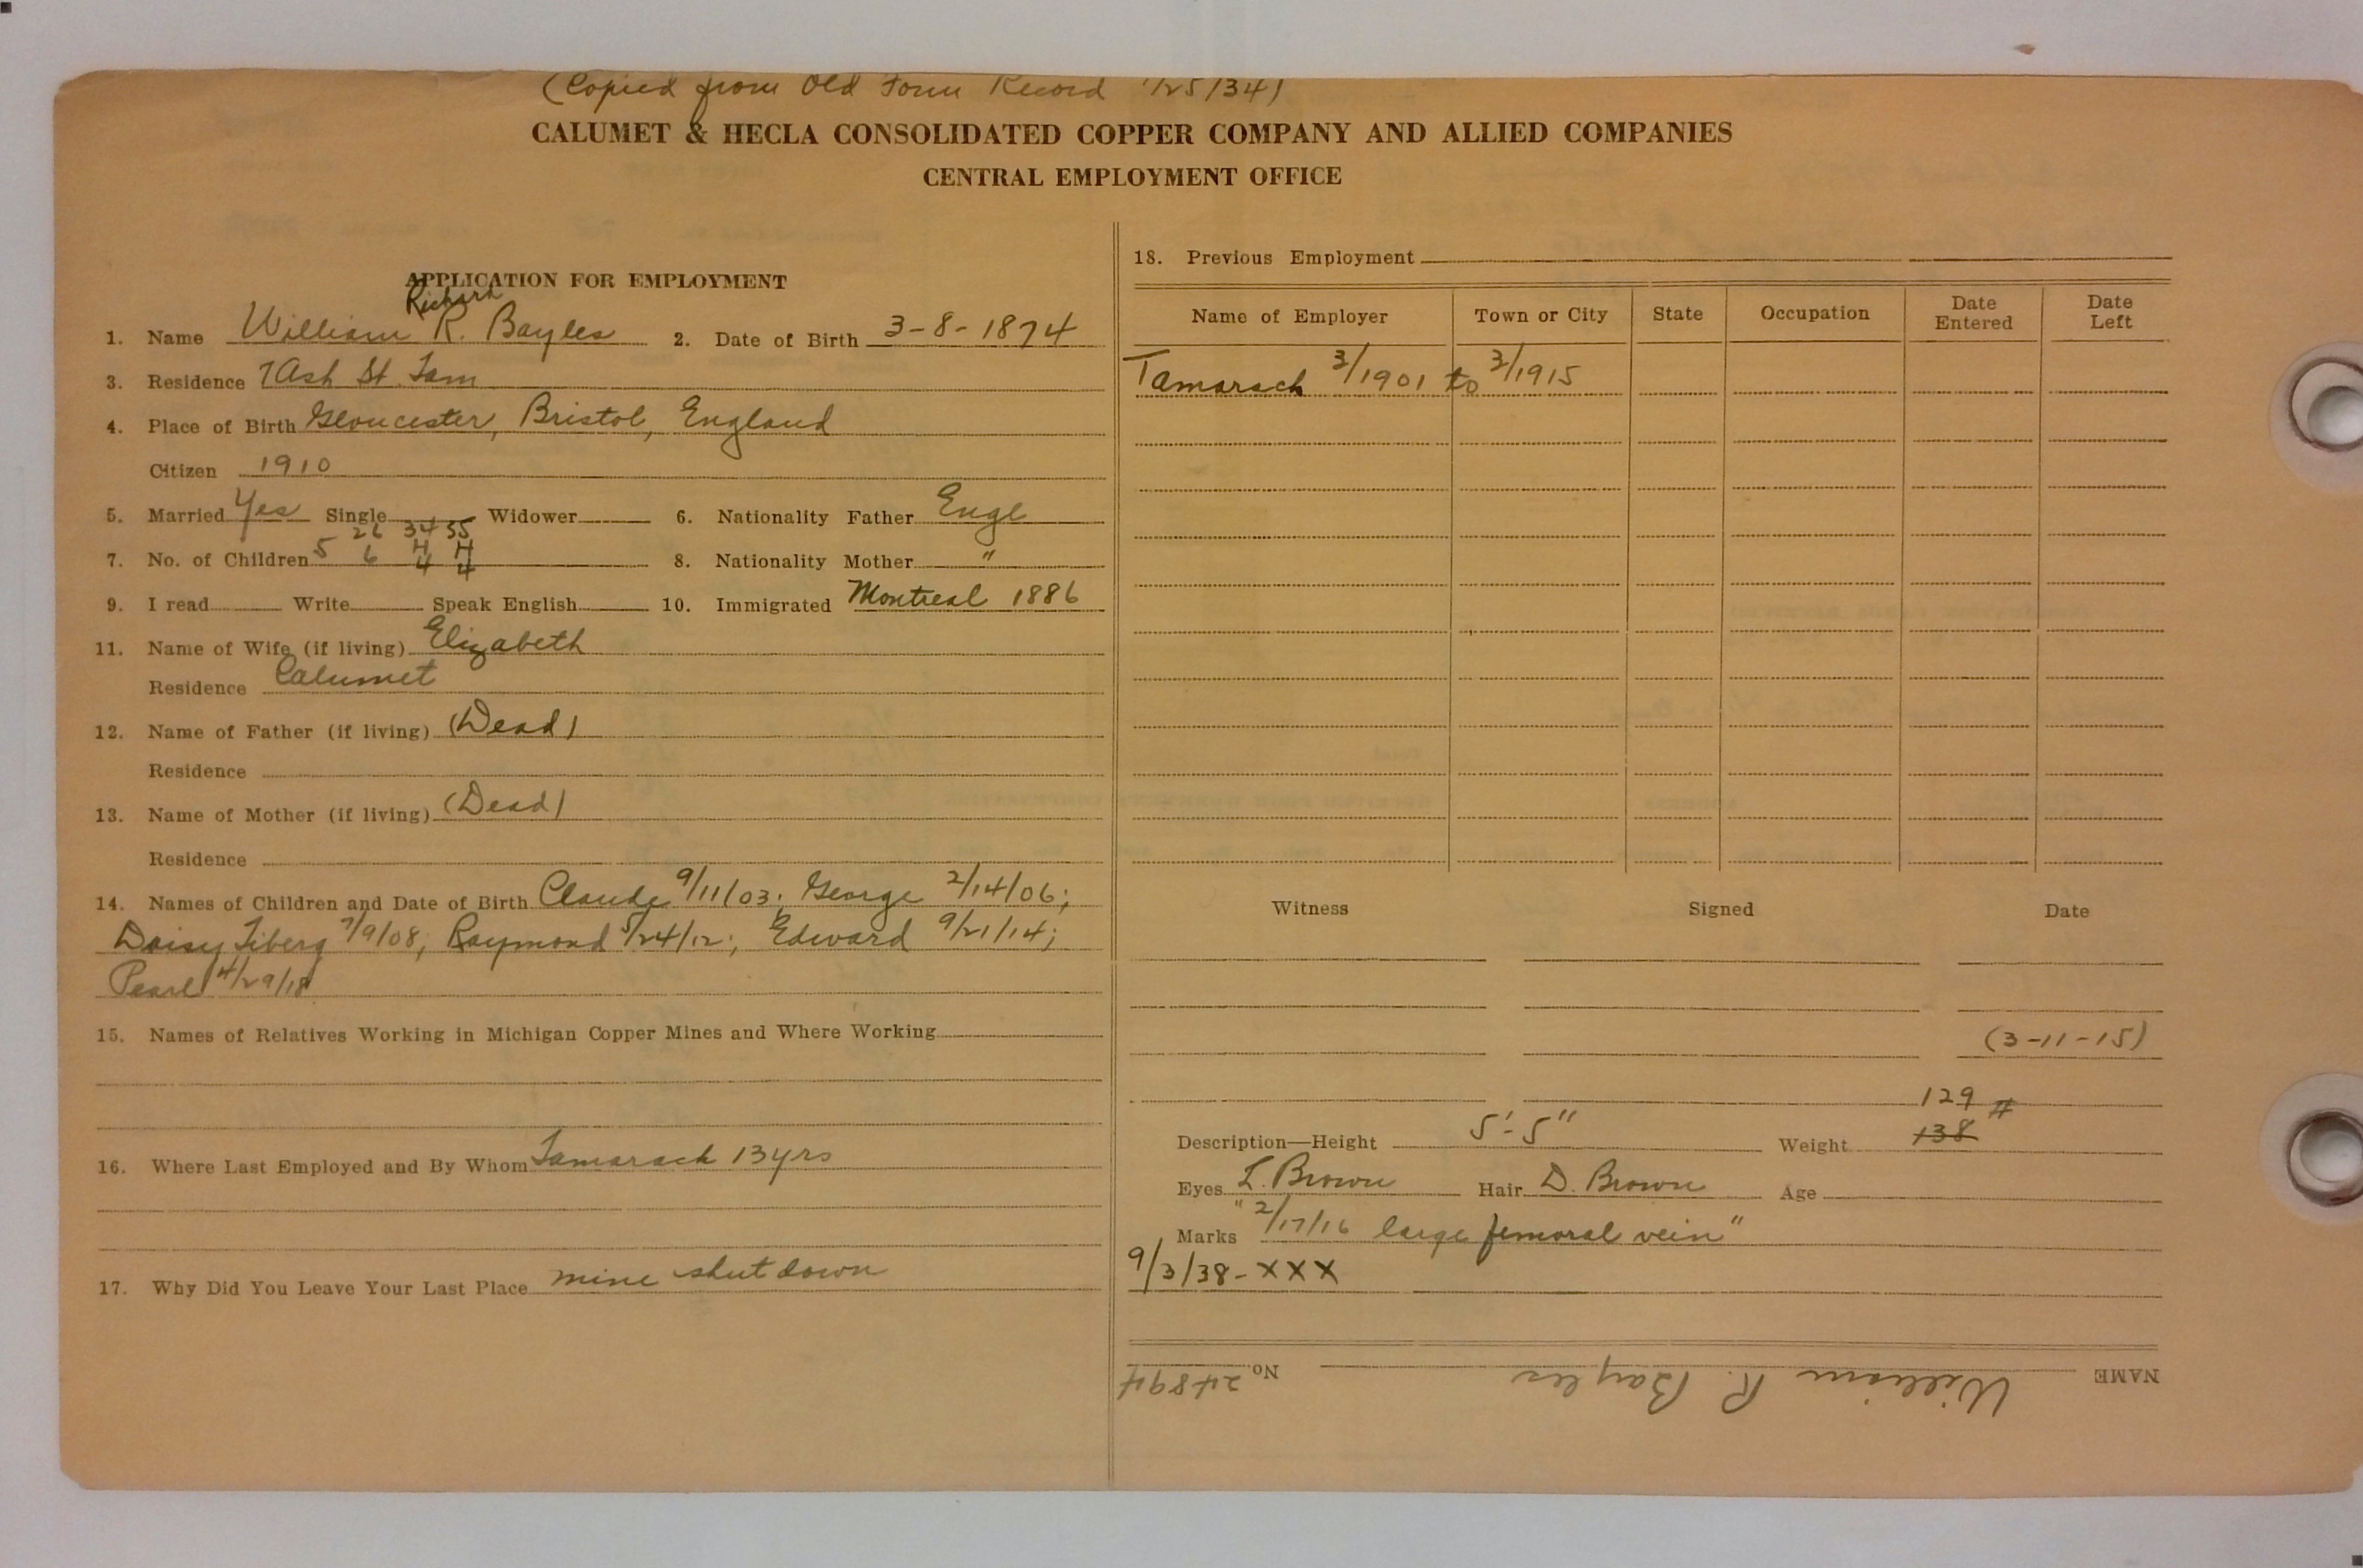 (Copied from Old Form Record 1/25/34)
CALUMET & HECLA CONSOLIDATED COPPER COMPANY AND ALLIED COMPANIES
CENTRAL EMPLOYMENT OFFICE
APPLICATION FOR EMPLOYMENT
Richard
1. Name William R. Bayles 2. Date of Birth 3-8-1874
3. Residence 7 Ash St Tam
4. Place of Birth Gloucester, Bristol, England
Citizen 1910
5. Married Yes Single Widower 6. Nationality Father Engl
26 34 35
7. No. of Children 5 6 4 4 8. Nationality Mother "
4 4
9. I read Write Speak English 10. Immigrated Montreal 1886
11. Name of Wife (if living) Elizabeth
Residence Calumet
12. Name of Father (if living) (Dead)
Residence
13. Name of Mother (if living) (Dead)
Residence
14. Names of Children and Date of Birth Claude 9/11/03; George 2/14/06;
Daisy Tiberg 7/9/08; Raymond 5/24/12; Edward 9/21/14;
Pearl 4/29/18
15. Names of Relatives Working in Michigan Copper Mines and Where Working
16. Where Last Employed and By Whom Tamarack 13 yrs
17. Why Did You Leave Your Last Place mine shut down
18. Previous Employment
Name of Employer Town or City State Occupation Date Entered Date Left
Tamarack 3/1901 to 3/1915
Witness Signed Date
(3-11-15)
129 #
Description—Height 5'-5" Weight 138
Eyes L. Brown Hair D. Brown Age
Marks "2/17/16 large femoral vein"
9/3/38-XXX
NAME William R. Bayles No 24894